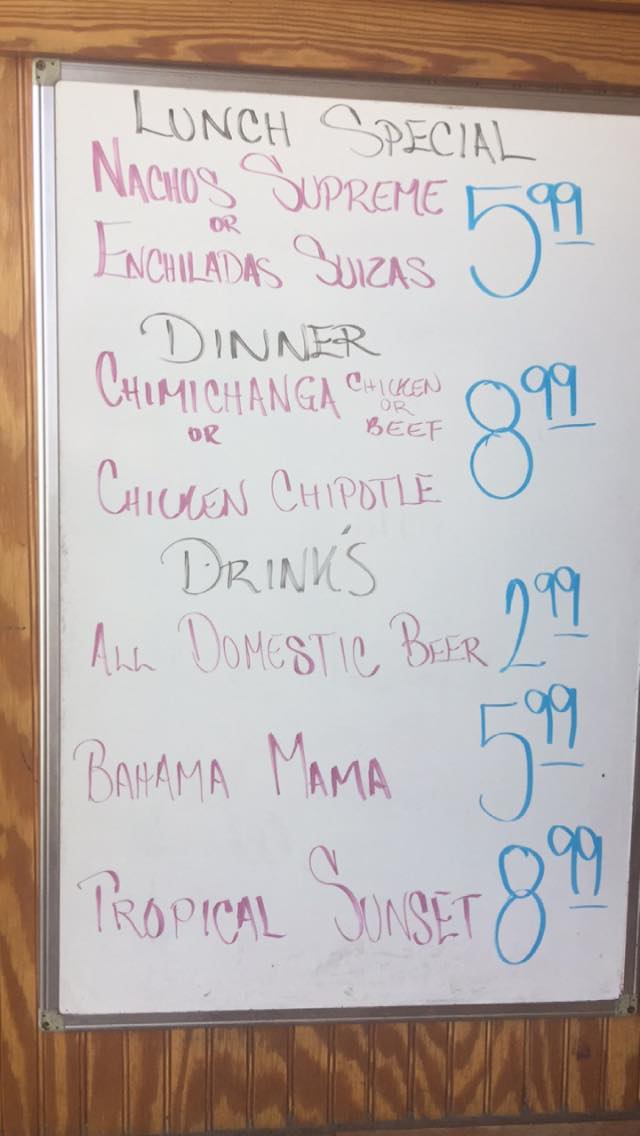 LUNCH SPECIAL
NACHOS SUPREME 5.99
OR
ENCHILADAS SUIZAS
DINNER
CHIMICHANGA CHICKEN OR BEEF 8.99
OR
CHICKEN CHIPOTLE
DRINK'S
ALL DOMESTIC BEER 2.99
BAHAMA MAMA 5.99
TROPICAL SUNSET 8.99